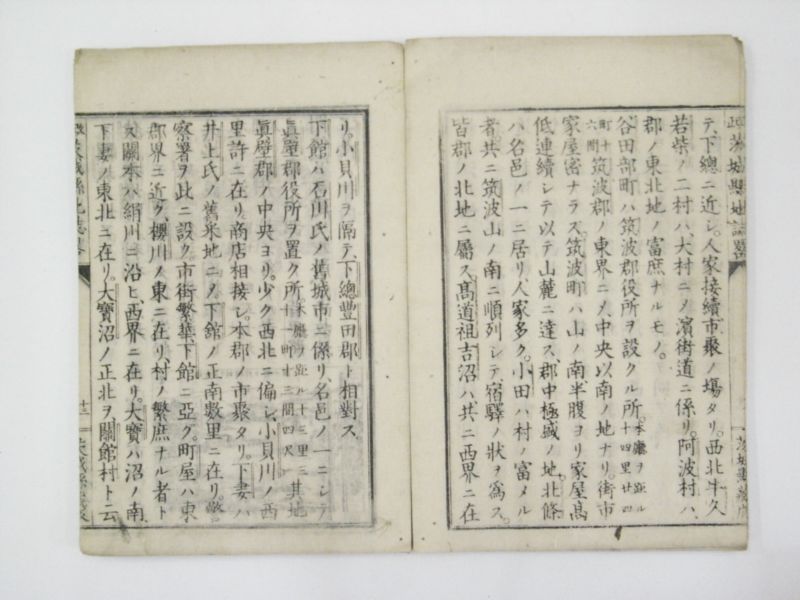 テ、下總ニ近シ。人家接續市聚ノ場タリ。西北牛久
若柴ノ二村ハ、大村ニメ濱街道ニ係リ。阿波村ハ、
郡ノ東北地ノ富庶ナルモノ。
谷田部町ハ筑波郡役所ヲ設クル所。本廳ヲ距ル十四里廿四
町十六間筑波郡ノ東界ニメ、中央以南ノ地ナリ。街市
家屋密ナラズ。筑波町ハ山ノ南半腹ヨリ家屋髙
低連續シテ以テ山麓ニ達ス、郡中極盛ノ地。北條
ハ名邑ノ一ニ居リ、人家多ク。小田ハ村ノ富メル
者共ニ筑波山ノ南ニ順列シテ宿驛ノ狀ヲ爲ス。
皆郡ノ北地ニ屬ス。髙道祖吉沼ハ共ニ西界ニ在
リ。小貝川ヲ隔テ、下總豊田郡ト相對ス
下館ハ石川氏ノ舊城市ニ係リ、名邑ノ一ニシテ
眞壁郡役所ヲ置ク所。本廳ヲ距ル十三里三十一町十三間四尺其地
眞壁郡ノ中央ヨリ。少ク西北ニ偏シ、小貝川ノ西
里許ニ在リ。商店相接シ。本郡ノ市聚タリ。下妻ハ
井上氏ノ舊采地ニメ、下館ノ正南數里ニ在リ。警
察署ヲ此ニ設ク。市街繁華、下館ニ亞グ。町屋ハ東
郡界ニ近ク、櫻川ノ東ニ在リ、村ノ繁庶ナル者ト
ス。關本ハ絹川ニ沿ヒ、西界ニ在リ。大寶ハ沼ノ南
下妻ノ東北ニ在リ。大寶沼ノ正北ヲ、關館村ト云